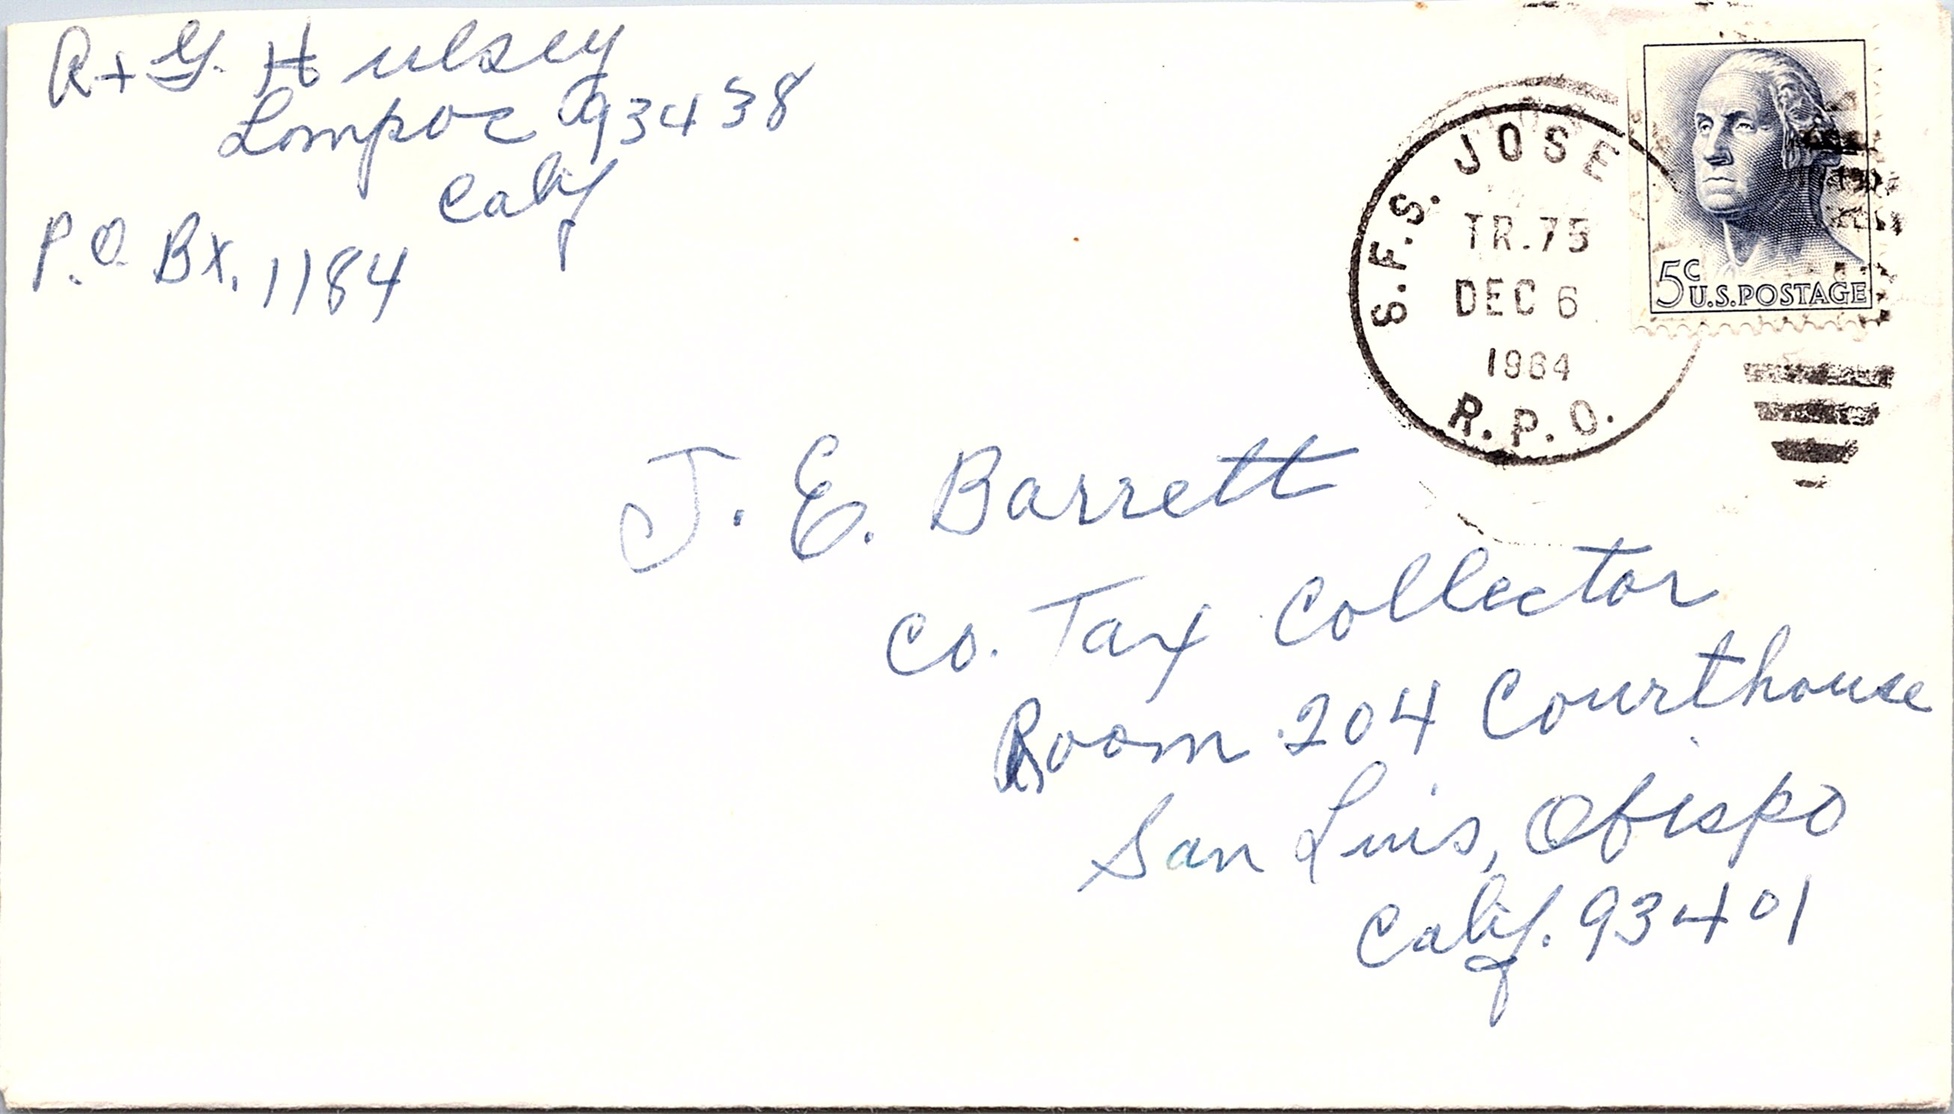 R + G. Hulsey
Lompoc 93438
Calif
P.O. Bx. 1184
S.F.S. JOSE
TR.75
DEC 6
1964
R.P.O.
5¢
U.S.POSTAGE
J. E. Barrett
Co. Tax Collector
Room 204 Courthouse
San Luis, Obispo
Calif. 93401